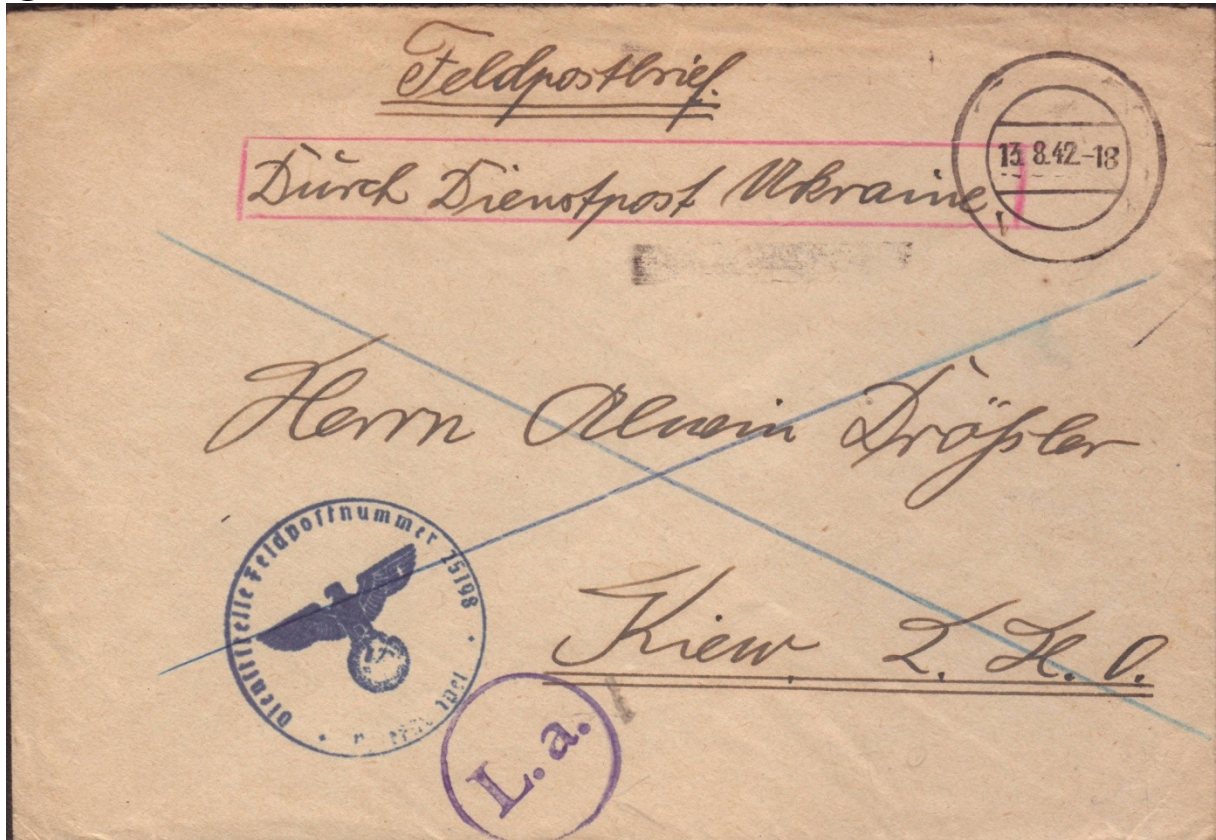 Feldpostbrief.
Durch Dienstpost Ukraine
13.8.42.-18
Herrn Alwin Dröszler
Dienststelle Feldpostnummer 25198
Kiew L. H. O.
L.a.